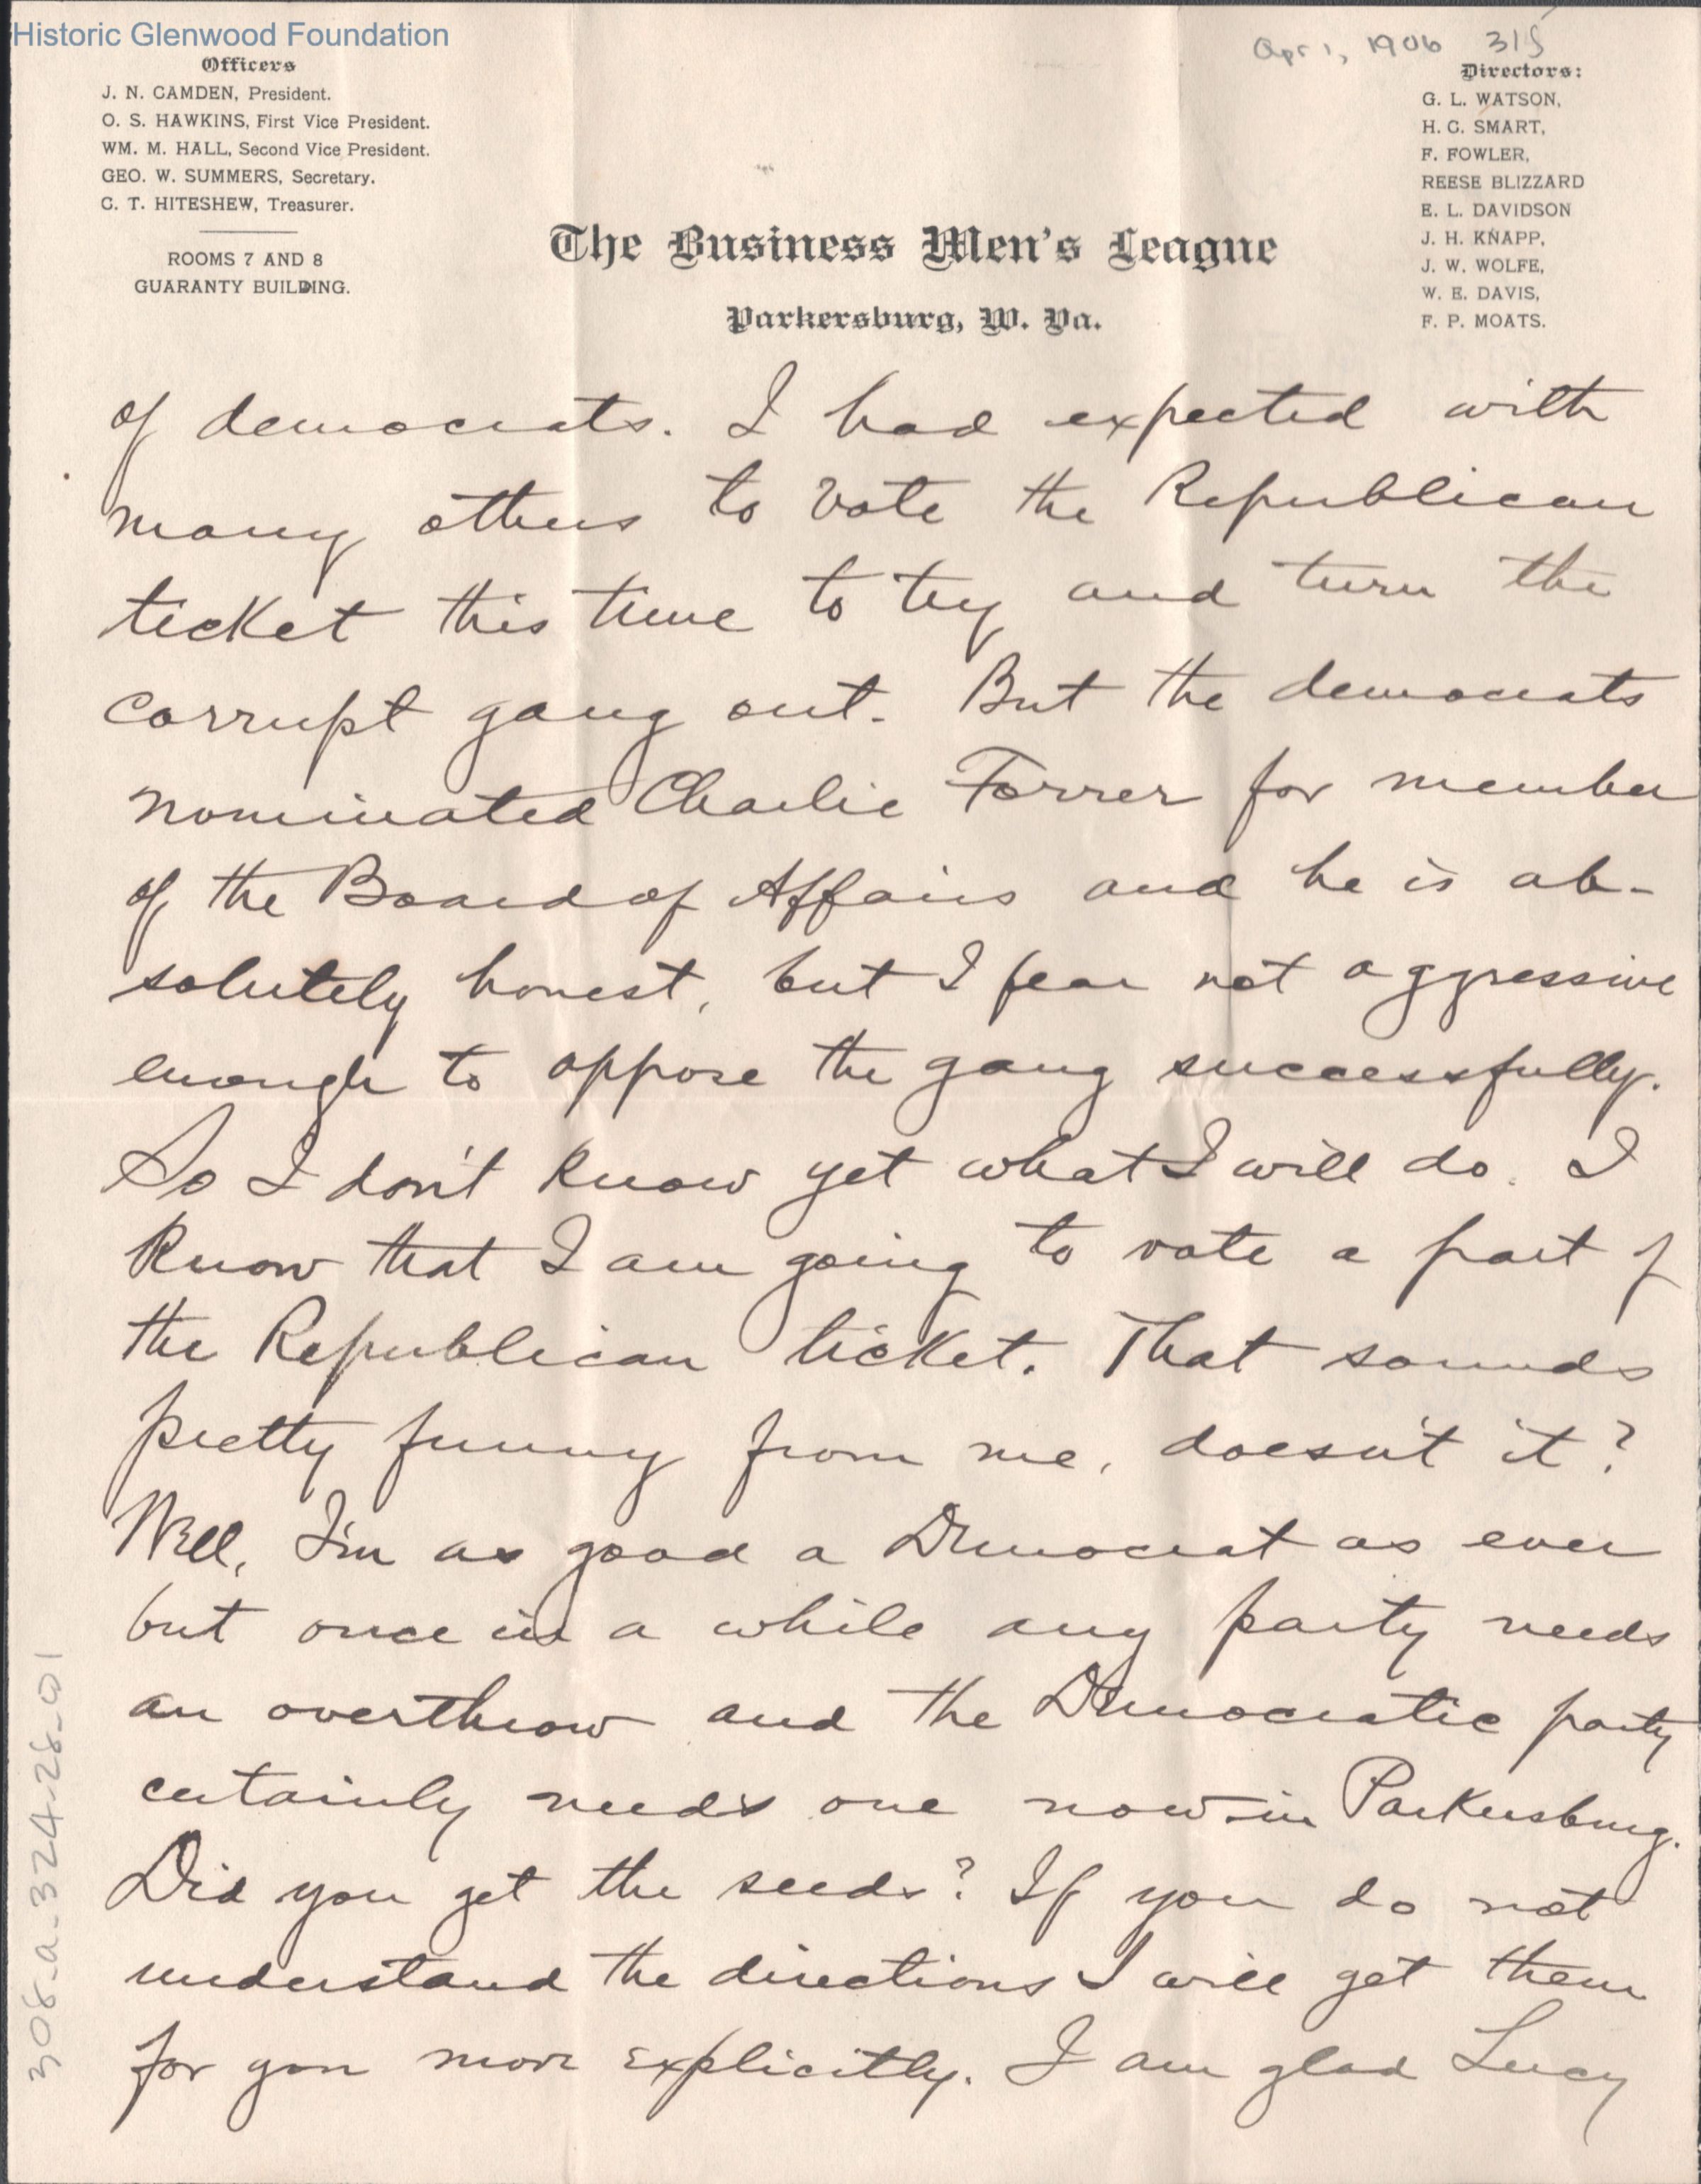 Historic Glenwood Foundation
Apr 1, 1906 315
Officers
J. N. CAMDEN, President.
O. S. HAWKINS, First Vice President.
WM. M. HALL, Second Vice President.
GEO. W. SUMMERS, Secretary.
C. T. HITESHEW, Treasurer.
ROOMS 7 AND 8
GUARANTY BUILDING.
Directors:
G. L. WATSON,
H. C. SMART,
F. FOWLER,
REESE BLIZZARD
E. L. DAVIDSON
J. H. KNAPP,
J. W. WOLFE,
W. E. DAVIS,
F. P. MOATS.
The Business Men's League
Parkersburg, W. Va.
of democrats. I had expected with
many others to vote the Republican
ticket this time to try and turn the
corrupt gang out. But the democrats
nominated Charlie Forrer for member
of the Board of Affairs and he is ab-
solutely honest, but I fear not aggressive
enough to oppose the gang successfully.
So I don't know yet what I will do. I
know that I am going to vote a part of
the Republican ticket. That sounds
pretty funny from me, doesn't it?
Well, I'm as good a Democrat as ever
but once in a while any party needs
an overthrow and the Democratic party
certainly needs one now in Parkersburg.
Did you get the seeds? If you do not
understand the directions I will get them
for you more explicitly. I am glad Lucy
308-a-324-28-01